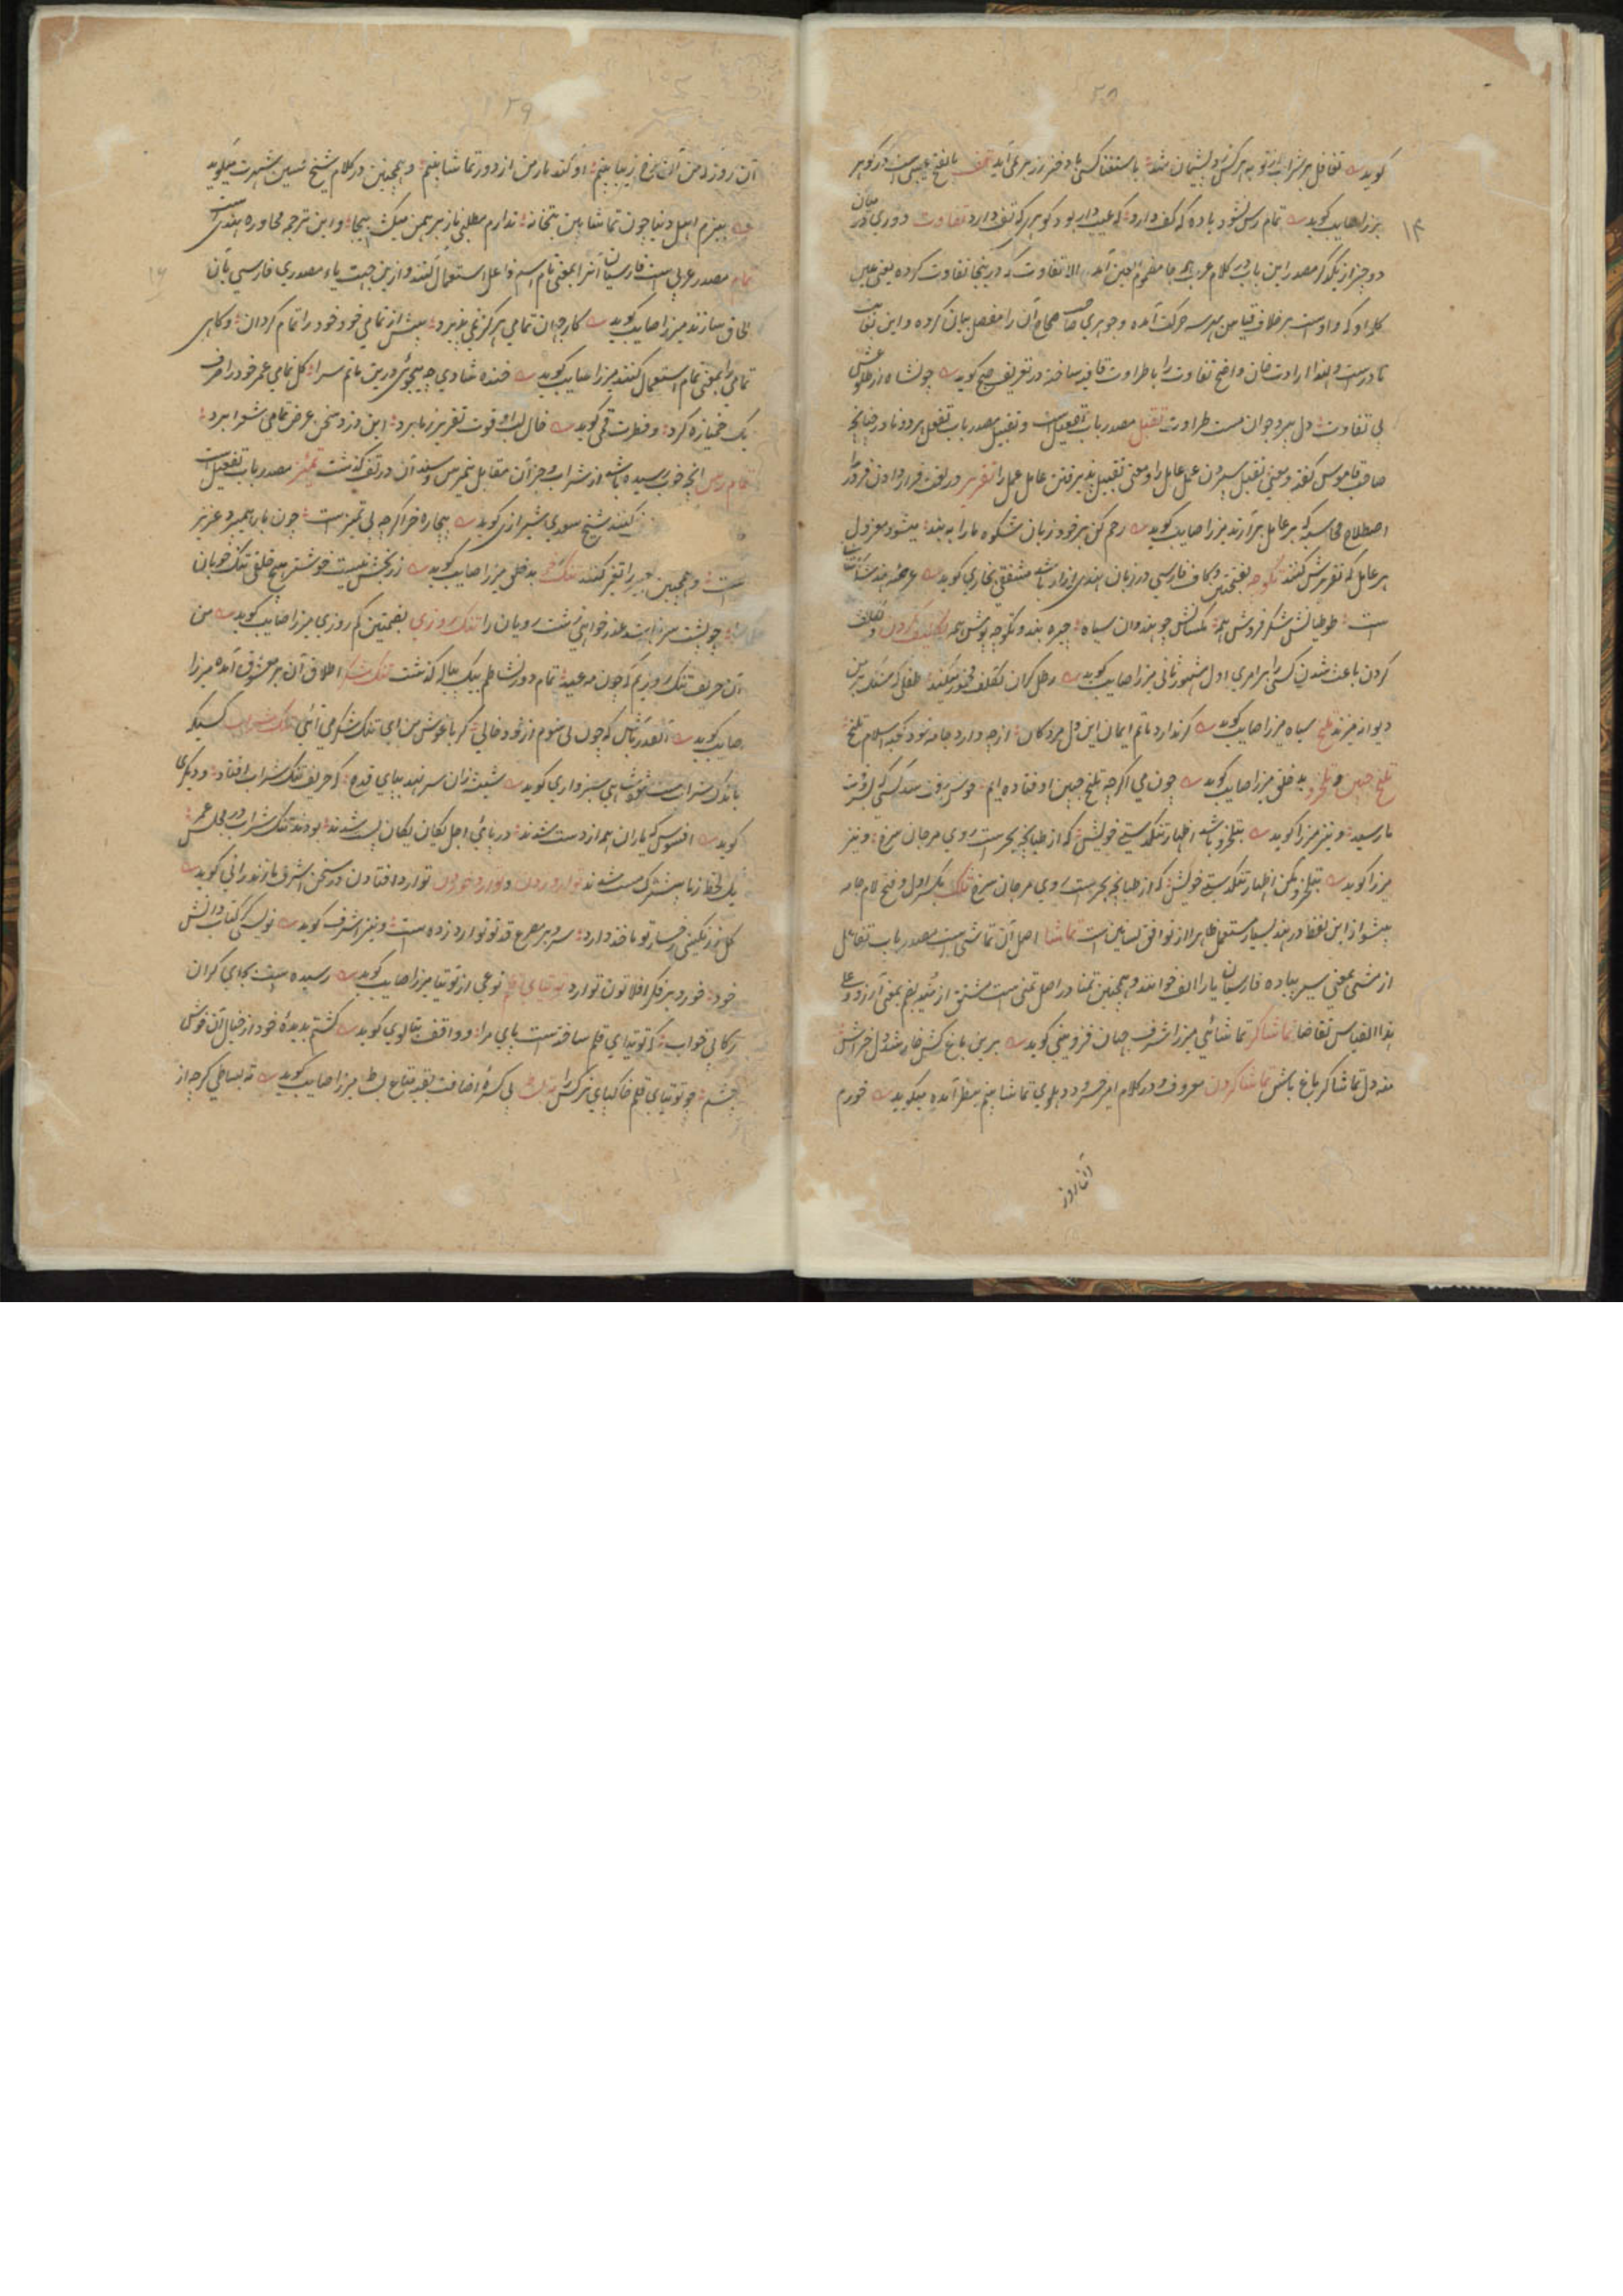 ۲۵
گوید تغافل بر شراب از توبه هر کس شد پشیمان شد با استغنا کسی با دختر رز بر نمی آید تف بالفتح عیبی است در گوهر
۱۴
میرزا صایب گوید تمام رس نشود باده که کف دارد که عیب دار بود گوهری که تف دارد تفاوت دوری میان
دو چیز از یکدگر مصدر این باب در کلام عرب همه جا مضموم العین آید الا تفاوت که درینجا تفاوت کرده یعنی عین
کلمه او که واو است بر خلاف قیاس بهر سه حرکت آمده و جوهری صاحب صحاح آن را مفصل بیان کرده و این بغایت
نادر است و لهذا ارادت خان واضح تفاوت را با طراوت قافیه ساخته در تعریف صبح گوید چو
بی تفاوت دل پیر و جوان مست طراوت تقبل مصدر باب تفعیل است و تقبل مصدر باب تفعل هر دو نادر چنانچه
صاحب قاموس گفته و معنی تقبل سپردن عمل عامل را و معنی تقبیل پذیرفتن عامل عمل را تقریر در لغت قرار دادن
اصطلاح محاسبه که بر عامل برآرند میرزا صایب گوید رحم کن بر خود زبان شکوه ما را ببند میشود معزول
هر عامل که تقریرش کنند تکوچه بفتحتین و کاف فارسی در زبان هندی ازار باشد مشفقی بخاری گوید
ست طوطیانش شکر فروش همه چو هندوان سیاه چیره بند و تکوچه پوش همه تکلیف کردن و تکلف
کردن باعث شدن کسی را بر امری اول مشهور ثانی میرزا صایب گوید رطل گران تکلف مخمور میکند طفلی که سنگ بر
دیوانه میزند تلخ سیاه میرزا صایب گوید گر ندارد ماتم ایمان این دل مردگان از چه دارد جامه خود کعبه اسلام تلخ
تلخ جبین و تلخرو بد خلق میرزا صایب گوید چون می اگرچه تلخ جبین اوفتاده ایم خوش وقت میکند کسی کز وقت
ما رسید و نیز میرزا گوید بتلخرو باشد اظهار تنگدستی خویش که از طپانچه بحر است روی مرجان سرخ و نیز
میرزا گوید بتلخرو مکن اظهار تنگدستی خویش که از طپانچه بحر است روی مرجان سرخ تلک بکسر اول و فتح لام جامه
پیشواز این لفظ در هند بسیار مستعمل ظاهرا از توافق لسانین است تماشا اصل آن تماشی است مصدر باب تفاعل
از مشی بمعنی سیر پیاده فارسیان یا را الف خوانند و همچنین تمنا در اصل تمنی است مشتق از منیه بضم بمعنی آرزو و علی
هذا القیاس تقاضا تماشاگر تماشائی میرزا شرف جهان قزوینی گوید برین باغ کش خار شد دل خراش
منه دل تماشاگر باغ باش تماشا کردن معروف و در کلام امیر خسرو دهلوی تماشا بینم بنظر آمده میگوید خورم
آن روز
۲۹
آن روز من آن رخ زیبا بینم او کند باز من از دور تماشا بینم و همچنین در کلام شیخ حسین شهرت میگوید
ببزم اهل دنیا چون تماشا بین بتخانه ندارم مطلبی باز برهمن میکشد اینجا و این ترجمه محاوره هندیست
تمام مصدر عربی است فارسیان آنرا بمعنی تام اسم فاعل استعمال کنند و ازین جهت یاء مصدری فارسی بآن
لاحق سازند میرزا صایب گوید کار جهان تمامی هرگز نمی پذیرد پیش از تمامی خود خود را تمام گردان و گاهی
تمامی را بمعنی تمام استعمال کنند میرزا صایب گوید خنده شادی چه میجوئی درین ماتم سرا گل تمامی عمر خود را صرف
یک خمیازه کرد و فطرت قمی گوید خال لب او قوت تقریر ز ما برد این دزد سخن عرض تمامی شعرا برد
تمام رس آنچه خوب رسیده باشد از شراب و جز آن مقابل نیم رس و سند آن در تف گذشت تمیز مصدر باب تفعیل است
کنند شیخ سعدی شیرازی گوید بیچاره خر اگرچه بی تمیز است چون بار همیبرد عزیز
است و همچنین تغیر کنند تنگ بد خلق میرزا صایب گوید ز رنجش نیست خوشتر هیچ خلقی تنگ خویان
را چو پشت سر نباشد عذر خواهی زشت رویان را تنگ روزی بضمتین کم روزی میرزا صایب گوید من
آن حریف تنگ روزیم که چون مه عید تمام دور نشاطم بیک پیاله گذشت تنگ شکر اطلاق آن بر معشوق آمده میرزا
صایب گوید آنقدر باش که چون نی شوم از خود خالی گر باغوش من ای تنگ شکر می آئی تنک شراب کسیکه
باندک شراب مست شود شاهی سبزواری گوید شیشه زان سر نهد بپای قدح که حریف تنک شراب افتاد و دیگری
گوید افسوس که یاران همه از دست شدند در پای اجل یگان یگان پست شدند بودند تنک شراب در مجلس عمر
یک لحظه ز ما پیشترک مست شدند توارد زدن و توارد خوردن توارد افتادن در سخن اشرف مازندرانی گوید
گل رخسار تو ماخذ دارد سرو بر مصرع قد تو توارد زده است و نیز اشرف گوید
خود خورد بر فکر افلاطون توارد توتیای قلم نوعی از توتیا میرزا صایب گوید رسیده است بجای گران
رکابی خواب که توتیای قلم ساخته است پای مرا و واقف بتالوی گوید گشتم بدیده خود از خیال آن خوش
چشم چو توتیای قلم خاکپای نرگس را ته بساط بی کسره اضافت بقیه متاع بساط میرزا صایب گوید ته بساطی گرچه از
۱۶